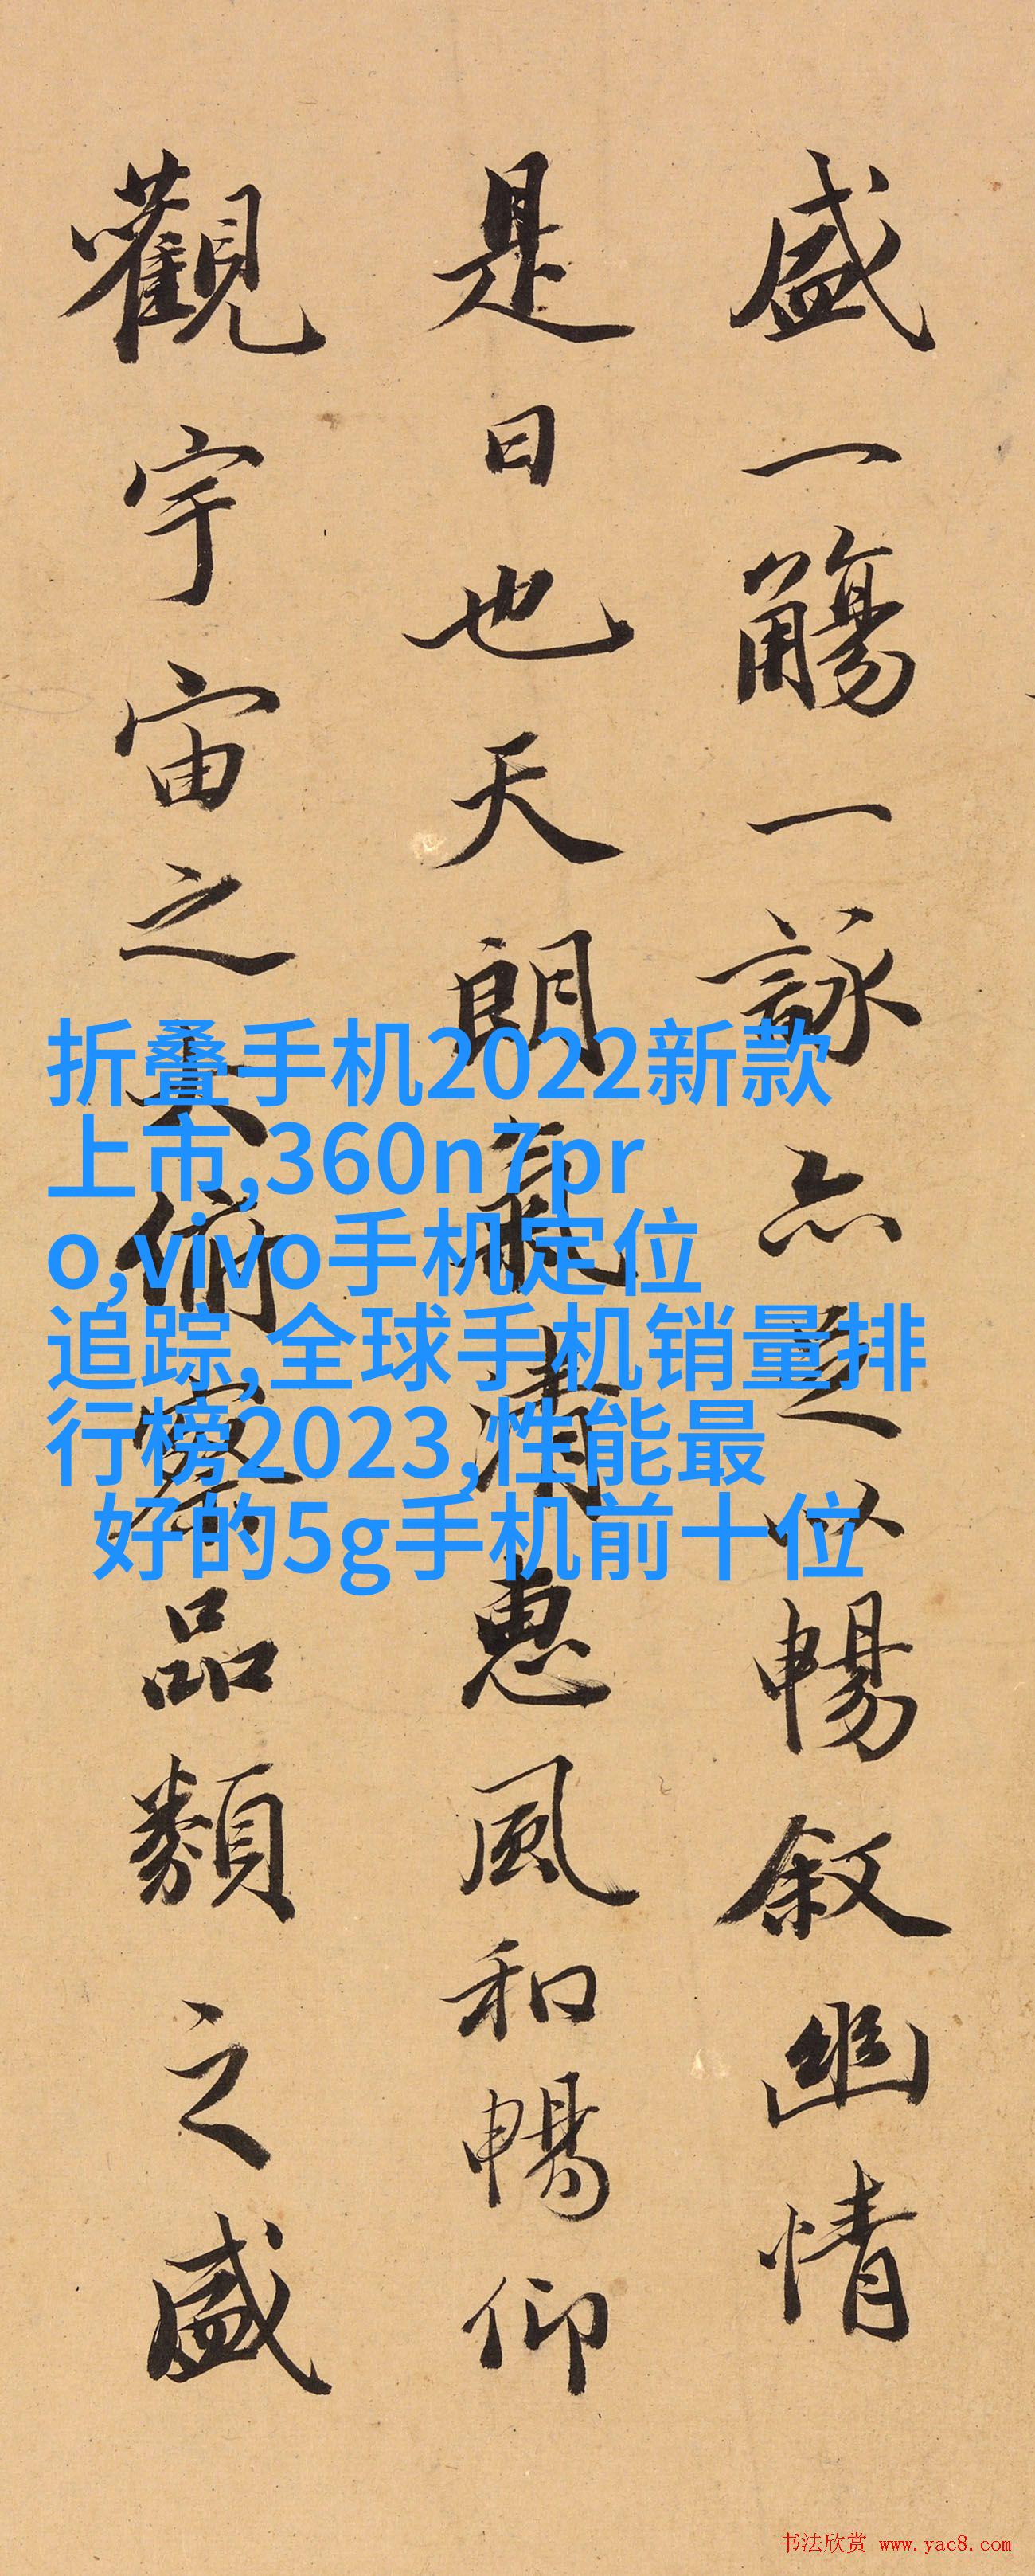 盛一觴一詠亦足以暢叙幽情
是日也天朗氣清惠風和暢仰
觀宇宙之大俯察品類之盛
折叠手机2022新款
上市,360n7pr
o,vivo手机定位
追踪,全球手机销量排
行榜2023,性能最
好的5g手机前十位
书法欣赏 www.yac8.com